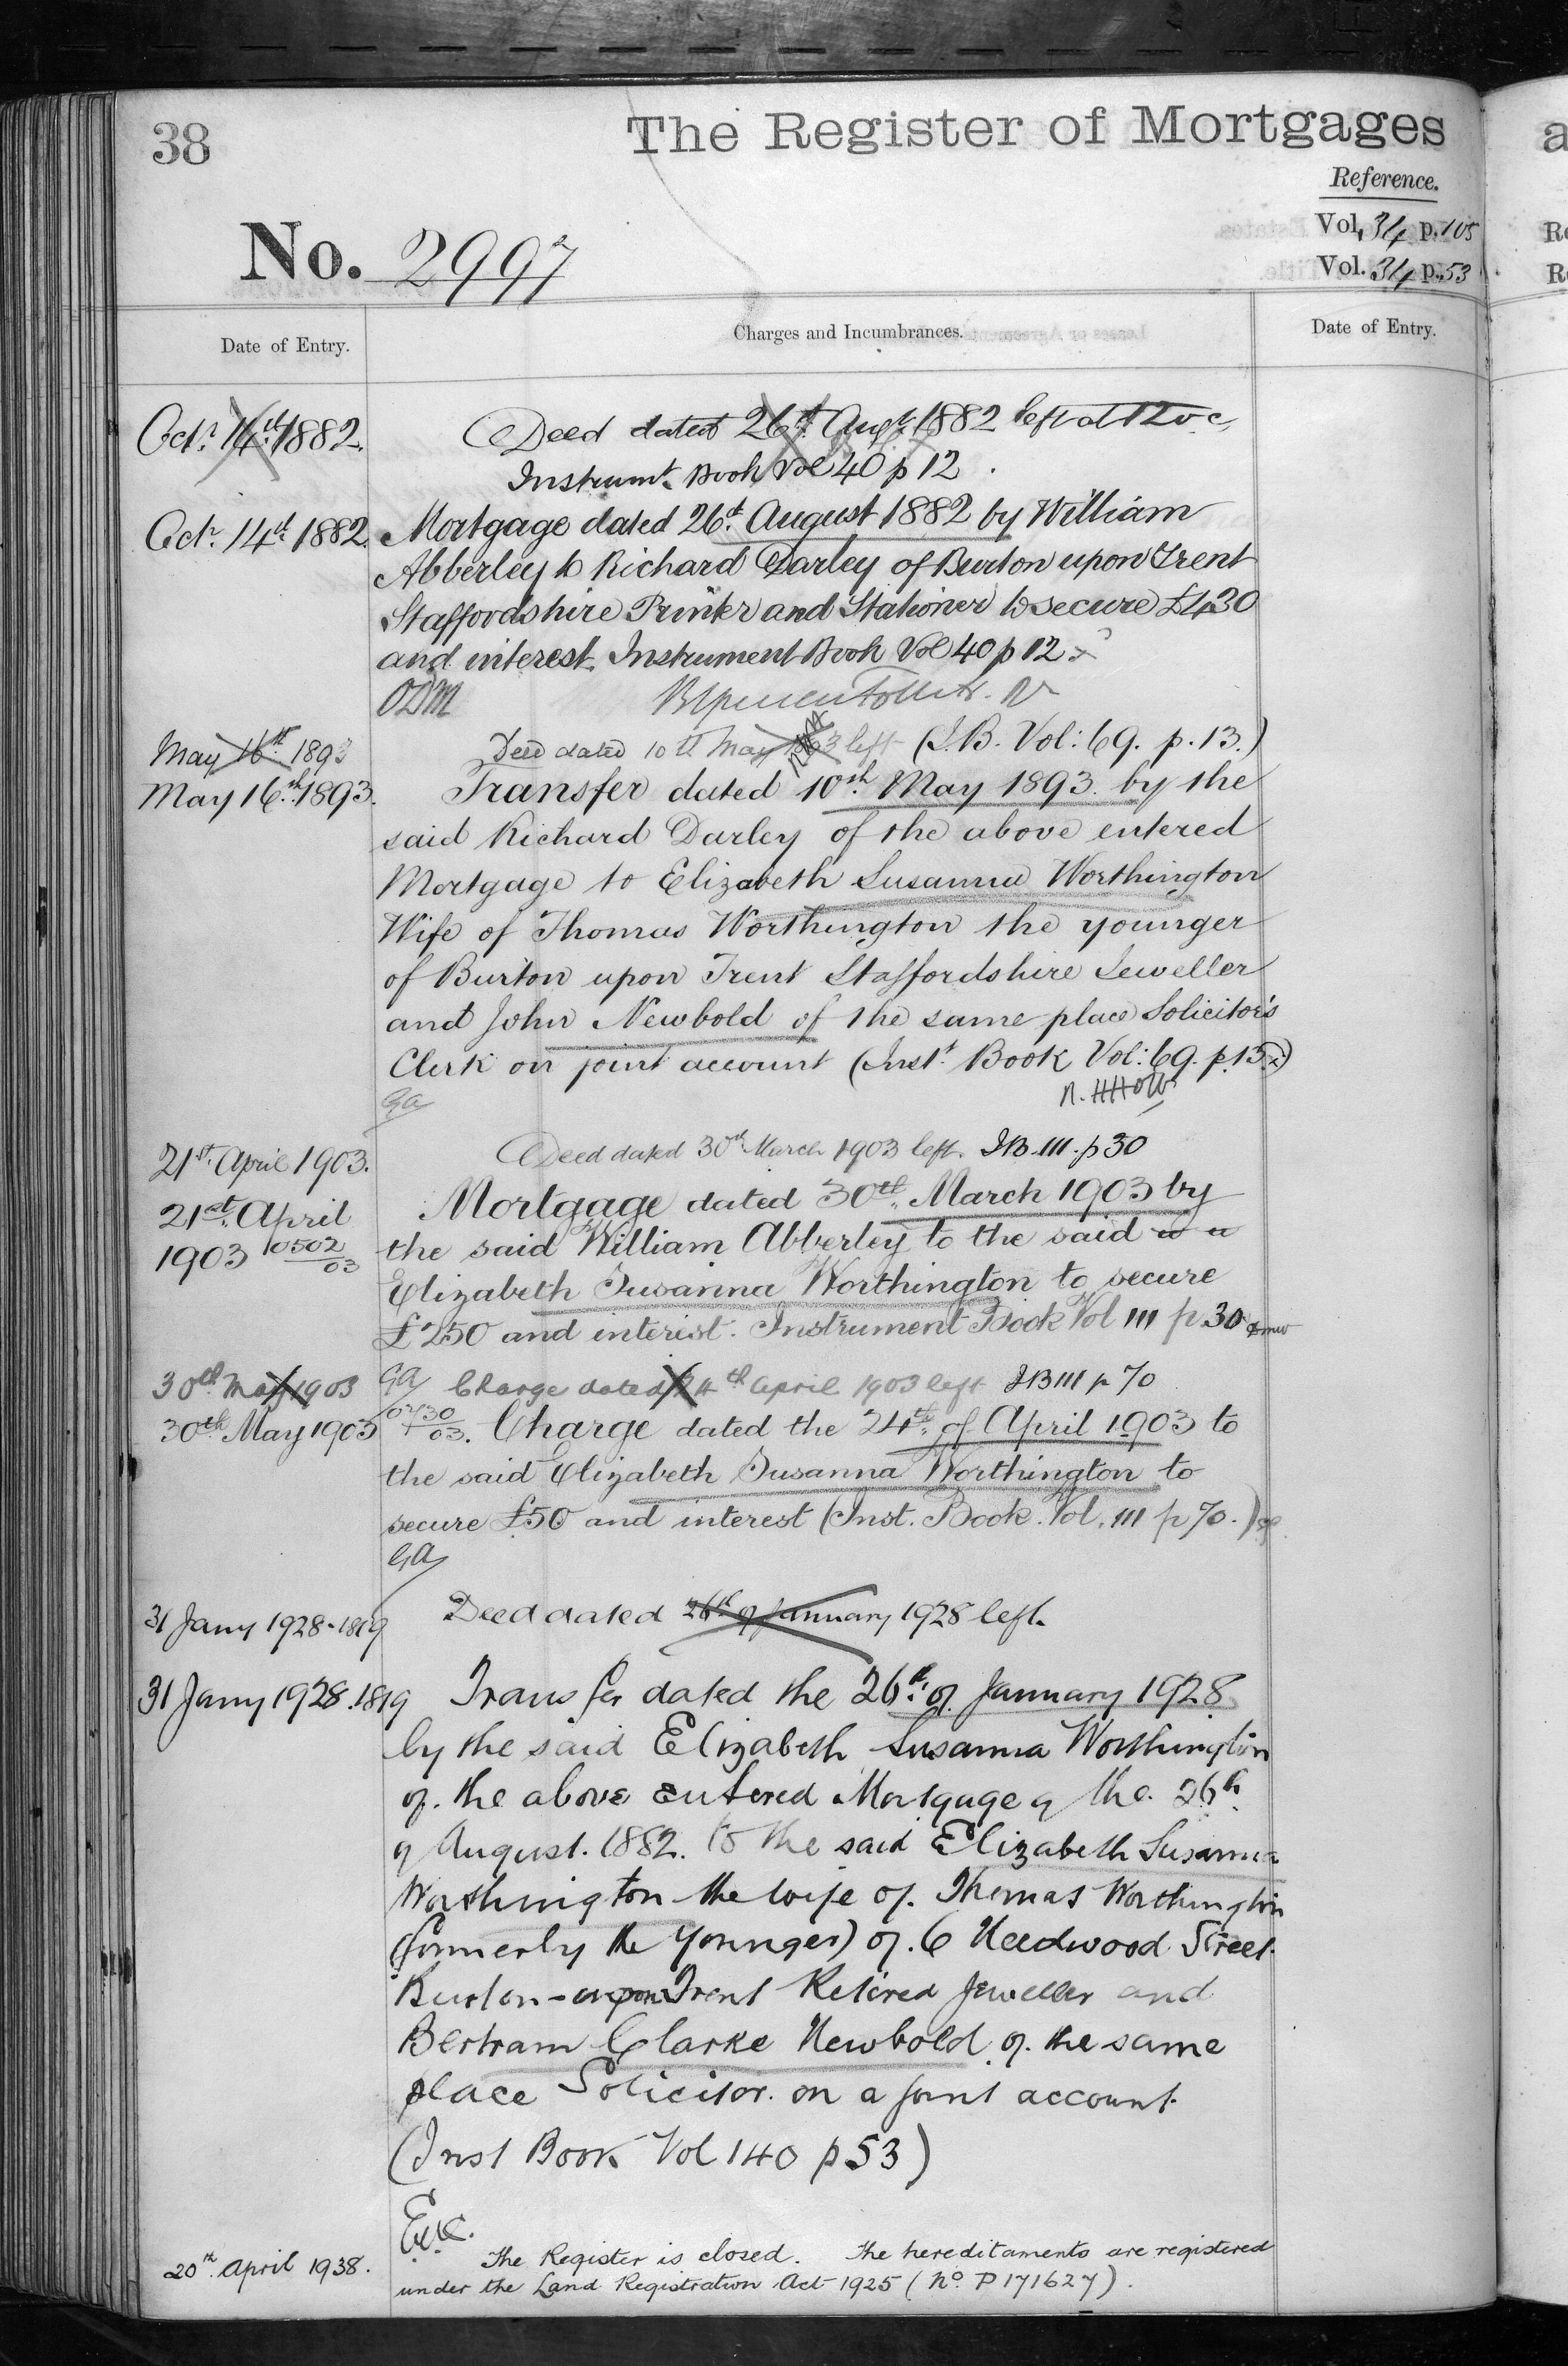 38
The Register of Mortgages
Reference.
No. 2997
Vol. 34 p. 105
Vol. 34 p. 53
Date of Entry.
Charges and Incumbrances.
Date of Entry.
Octr. 14th 1882. Deed dated 26th. Augt. 1882 left at 12 o.c.
Instrumt. Book Vol 40 p 12.
Octr. 14th 1882. Mortgage dated 26th. August 1882 by William
Abberley to Richard Darley of Burton upon Trent
Staffordshire Printer and Stationer to secure £430
and interest. Instrument Book Vol 40 p 12.
ODM
May 16th 1893 Deed dated 10th May 1893 left (I.B. Vol: 69. p. 13.)
May 16th. 1893. Transfer dated 10th. May 1893. by the
said Richard Darley of the above entered
Mortgage to Elizabeth Susanna Worthington
Wife of Thomas Worthington the younger
of Burton upon Trent Staffordshire Jeweller
and John Newbold of the same place Solicitor's
Clerk on joint account (Inst. Book Vol: 69. p. 13.)
GA
21st. April 1903. Deed dated 30th March 1903 left. IB. 111. p 30
21st. April Mortgage dated 30th. March 1903 by
1903 10502/03 the said William Abberley to the said
Elizabeth Susanna Worthington to secure
£250 and interest. Instrument Book Vol 111 p 30
30th May 1903 GA Charge dated 24th April 1903 left IB 111 p 70
30th May 1903 Charge dated the 24th. of April 1903 to
the said Elizabeth Susanna Worthington to
secure £50 and interest (Inst. Book. Vol. 111 p 70.)
GA
31 Jany 1928 - 1819 Deed dated 26th of January 1928 left.
31 Jany 1928. 1819 Transfer dated the 26th. of January 1928
by the said Elizabeth Susanna Worthington
of the above entered Mortgage of the 26th
of August. 1882. to the said Elizabeth Susanna
Worthington the wife of Thomas Worthington
(formerly the Younger) of 6 Needwood Street
Burton-upon Trent Retired Jeweller and
Bertram Clarke Newbold of the same
place Solicitor. on a joint account.
(Inst Book Vol 140 p 53)
20th. April 1938. The Register is closed. The hereditaments are registered
under the Land Registration Act 1925 (No. P171627).